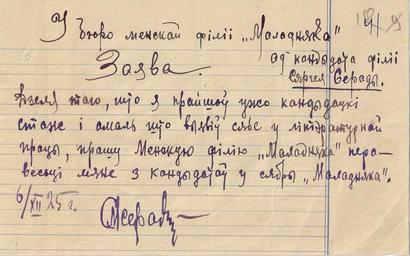 У бюро менскай філіі „Маладняка"
ад кандыдата філіі
Сяргея Серады.
Заява.
Дзеля таго, што я прайшоў ужо кандыдацкі
стаж і амаль што выявіў сябе у літэратурнай
працы, прашу Менскую філію „Маладняка" пера-
весьці мяне з кандыдатаў у сябры „Маладняка".
6/XII 25 г.